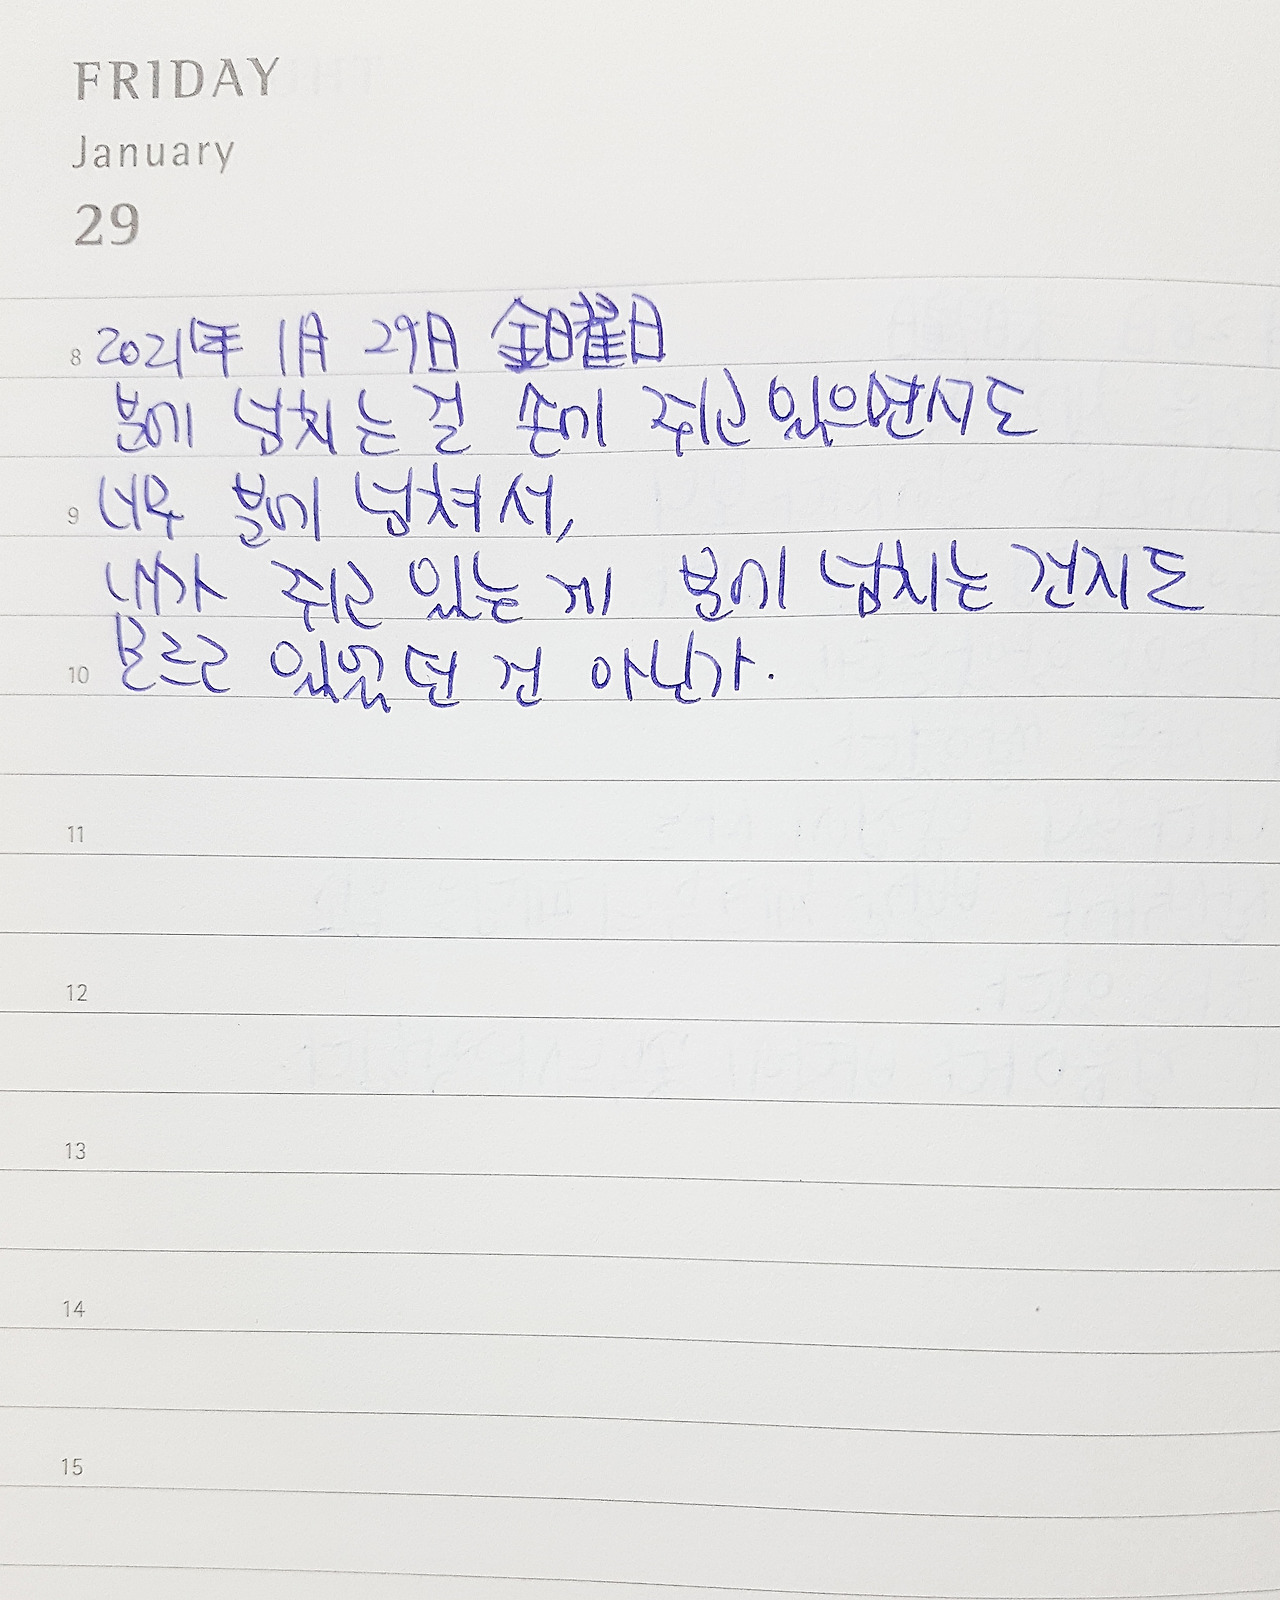 FRIDAY
January
29
8 2021年 1月 29日 金曜日
분에 넘치는 걸 손에 쥐고 있으면서도
9 너무 분에 넘쳐서,
내가 쥐고 있는 게 분에 넘치는 건지도
10 모르고 있었던 건 아닌가.
11
12
13
14
15